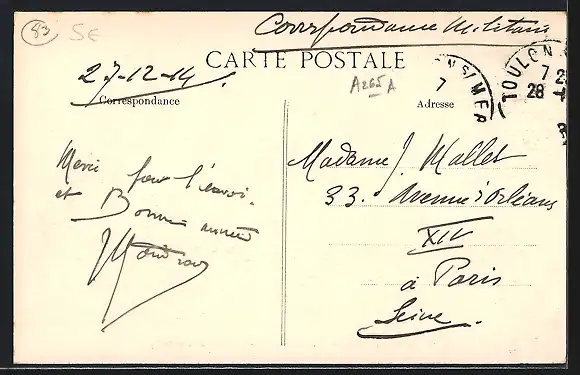 83
5E
Correspondance Militaire
CARTE POSTALE
27-12-14
A265A
Correspondance
Adresse
TOULON S/MER
7
28
TOULON S
7 2
28
Merci pour l'envoi.
et Bonne année
Madame J. Mallet
33. Avenue d'Orléans
XIV
à Paris
Seine.